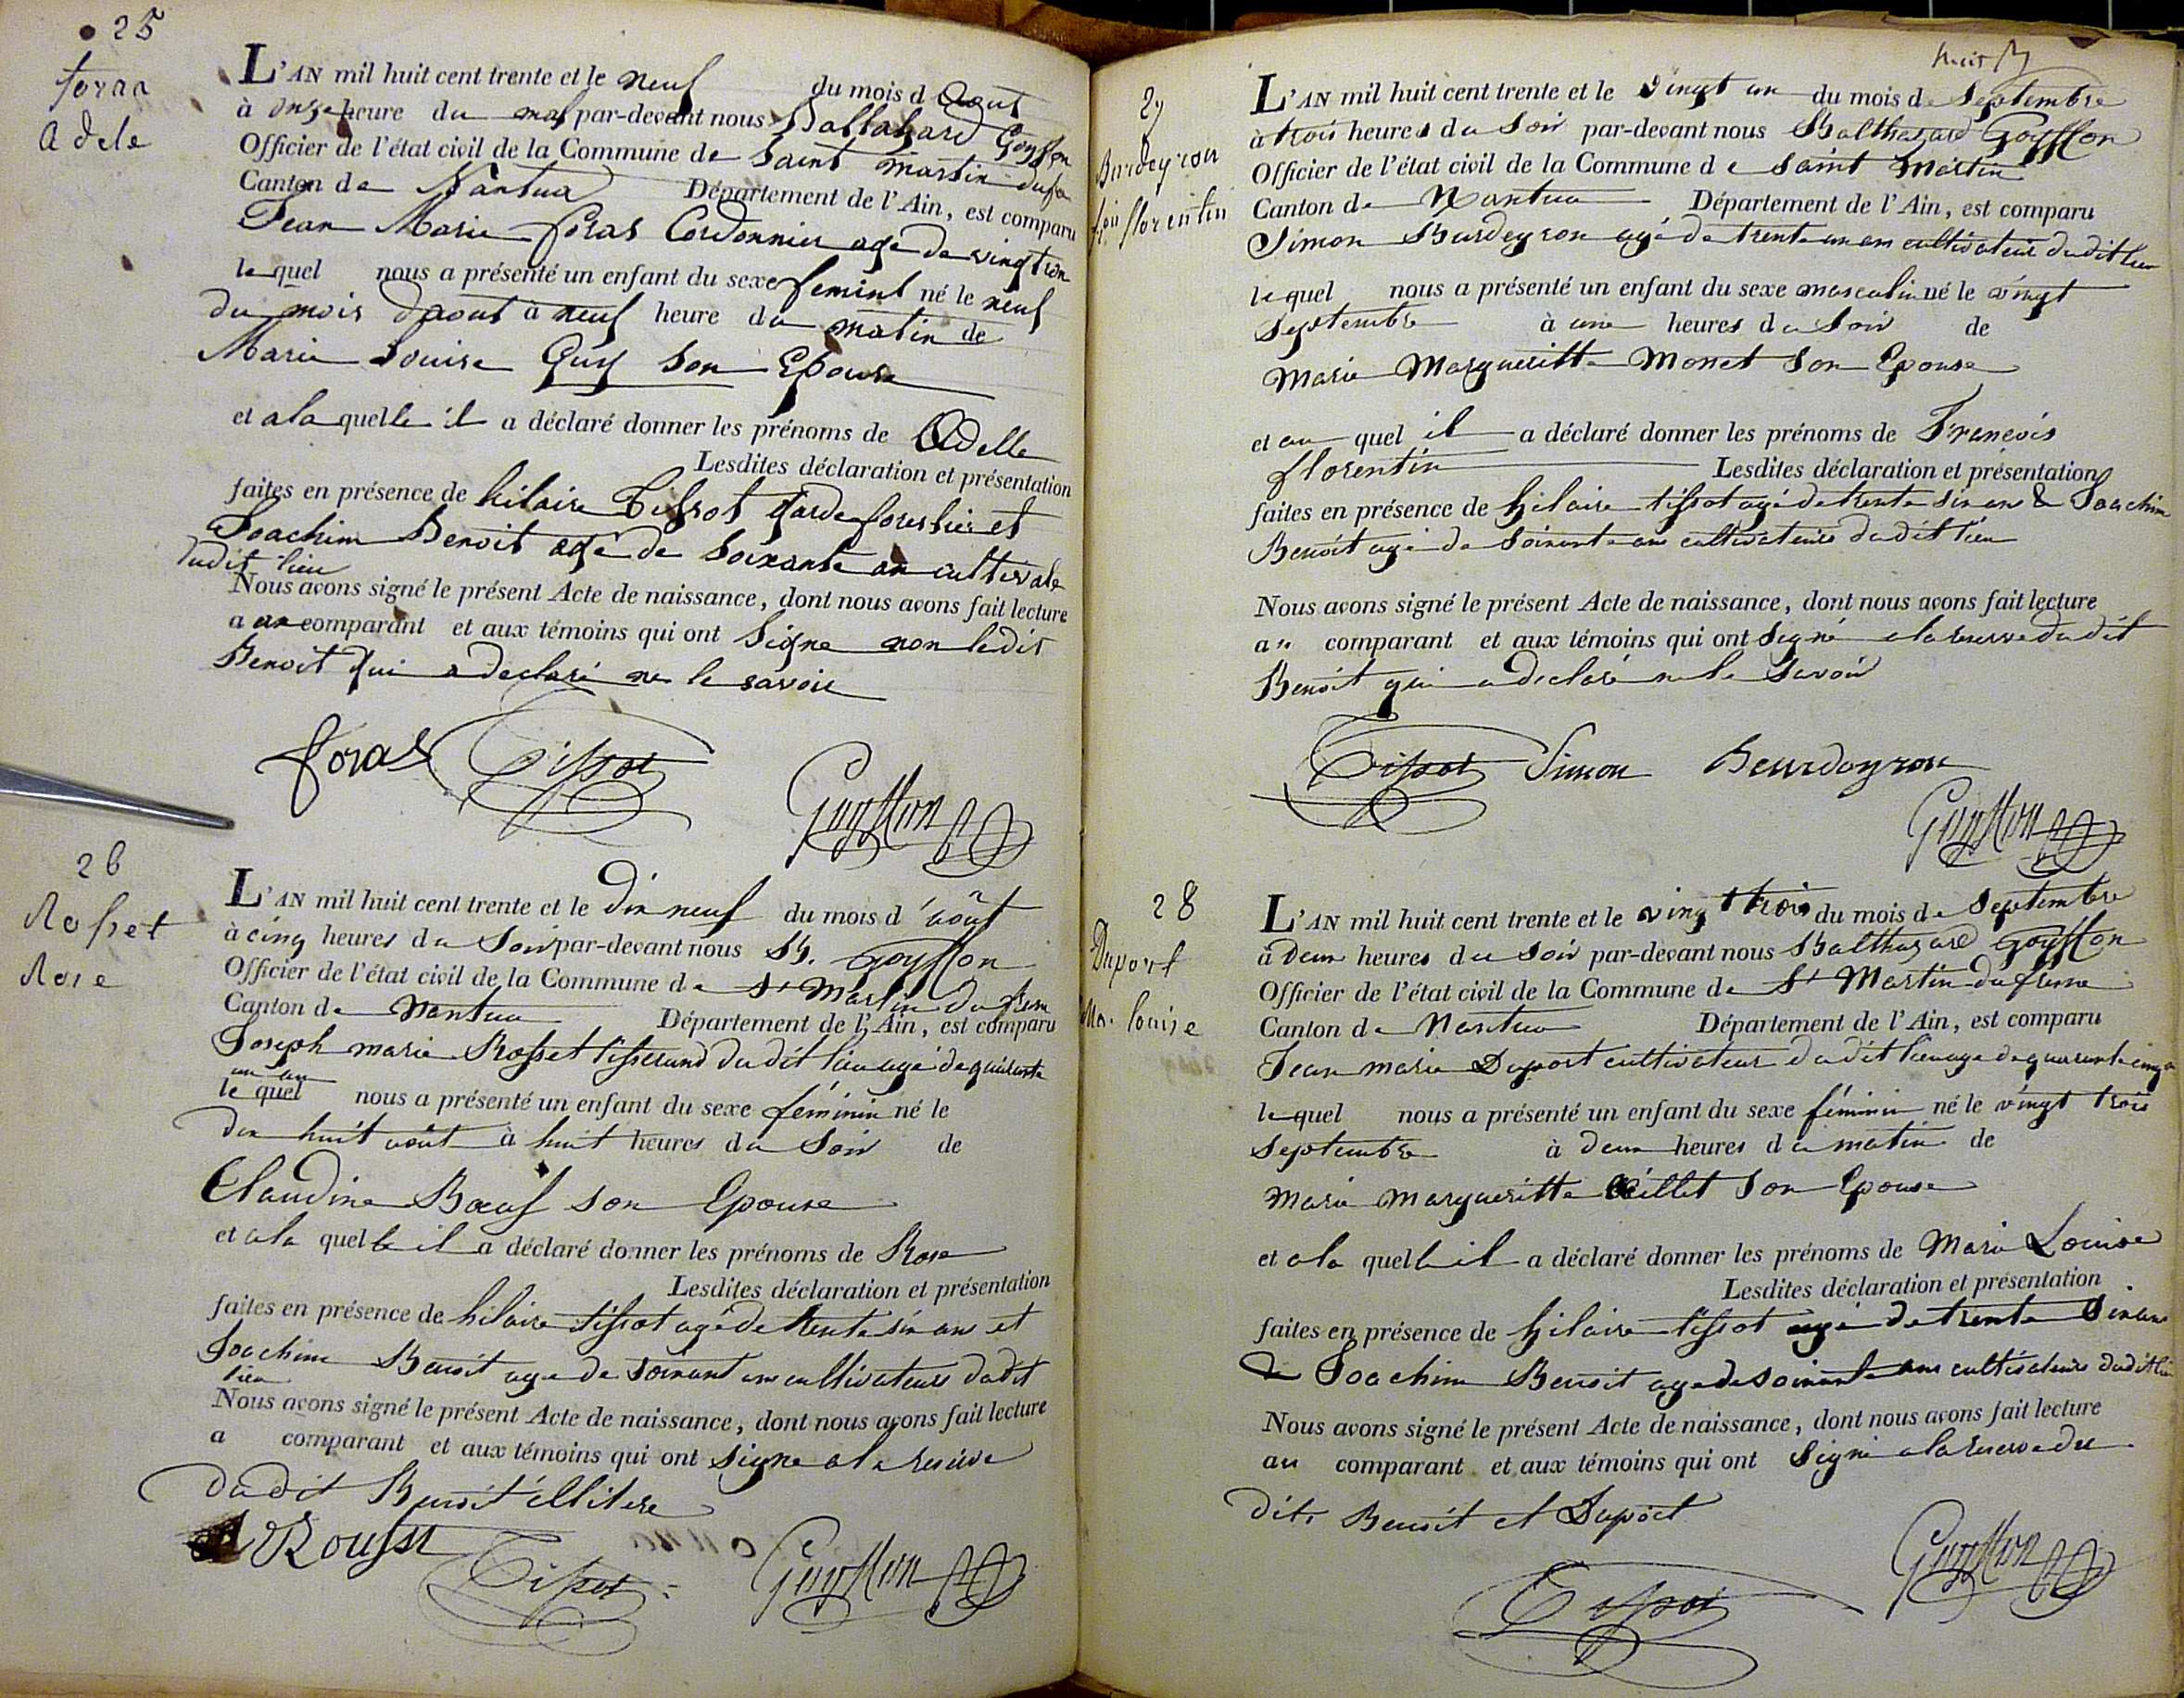 25
foras
Adele
L'AN mil huit cent trente et le neuf du mois d Aout
à onze heure du mat par-devant nous Baltazard Goyffon
Officier de l'état civil de la Commune de Saint Martin dufre
Canton de Nantua Département de l'Ain, est comparu
Jean Marie foras Cordonnier age de vingt
le quel nous a présenté un enfant du sexe feminl né le neuf
du mois daout à neuf heure du matin de
Marie Louise Guy son Epouse
et a la quelle il a déclaré donner les prénoms de Adelle
Lesdites déclaration et présentation
faites en présence de hilaire Tissot Garde forestier et
Joachim Benoit agé de soixante an cultivate
dudit lieu
Nous avons signé le présent Acte de naissance, dont nous avons fait lecture
a au comparant et aux témoins qui ont Signe non ledit
Benoit qui a declaré ne le savoir
foras Tissot
Goyffon
26
Rosset
Rose
L'AN mil huit cent trente et le dix neuf du mois d'août
à cinq heures du Soir par-devant nous B. Goyffon
Officier de l'état civil de la Commune de St Martin du frene
Canton de Nantua Département de l'Ain, est comparu
Joseph marie Rosset tisserand dudit lieu agé de quarante
un an
le quel nous a présenté un enfant du sexe féminin né le
dix huit août à huit heures du Soir de
Claudine Bœuf son Epouse
et a la quelle il a déclaré donner les prénoms de Rose
Lesdites déclaration et présentation
faites en présence de hilaire tissot agé de trente six ans et
Joachim Benoit age de soixant ans cultivateurs dudit
lieu
Nous avons signé le présent Acte de naissance, dont nous avons fait lecture
a comparant et aux témoins qui ont signe a la reserve
dudit Benoit illitere
Rousset
Tissot Goyffon
27
Burdeyron
fçois florentin
L'AN mil huit cent trente et le vingt un du mois de Septembre
à trois heures du Soir par-devant nous Balthazard Goyffon
Officier de l'état civil de la Commune de saint Martin
Canton de Nantua Département de l'Ain, est comparu
Simon Burdeyron agé de trente un an cultivateur dudit lieu
le quel nous a présenté un enfant du sexe masculin né le vingt
Septembre à une heures du Soir de
Marie Margueritte Monet son Epouse
et au quel il a déclaré donner les prénoms de François
florentin Lesdites déclaration et présentation
faites en présence de hilaire tissot agé de trente six ans & Joachim
Benoit agé de soixante ans cultivateurs dudit lieu
Nous avons signé le présent Acte de naissance, dont nous avons fait lecture
au comparant et aux témoins qui ont signé a la reserve dudit
Benoit qui a declaré ne le Savoir
Tissot Simon Beurdeyron
Goyffon
28
Duport
Ma. louise
L'AN mil huit cent trente et le vingt trois du mois de Septembre
à deux heures du soir par-devant nous Balthazard Goyffon
Officier de l'état civil de la Commune de St Martin du frene
Canton de Nantua Département de l'Ain, est comparu
Jean marie Duport cultivateur dudit lieu age de quarante cinq
le quel nous a présenté un enfant du sexe féminin né le vingt trois
Septembre à deux heures du matin de
Marie Margueritte Œillet son Epouse
et a la quelle il a déclaré donner les prénoms de Marie Louise
Lesdites déclaration et présentation
faites en présence de hilaire tissot agé de trente Six ans
& Joachim Benoit age de soixante ans cultivateurs dudit lieu
Nous avons signé le présent Acte de naissance, dont nous avons fait lecture
au comparant et aux témoins qui ont Signé a la reserve des
dits Benoit et Duport
Goyffon
Tissot